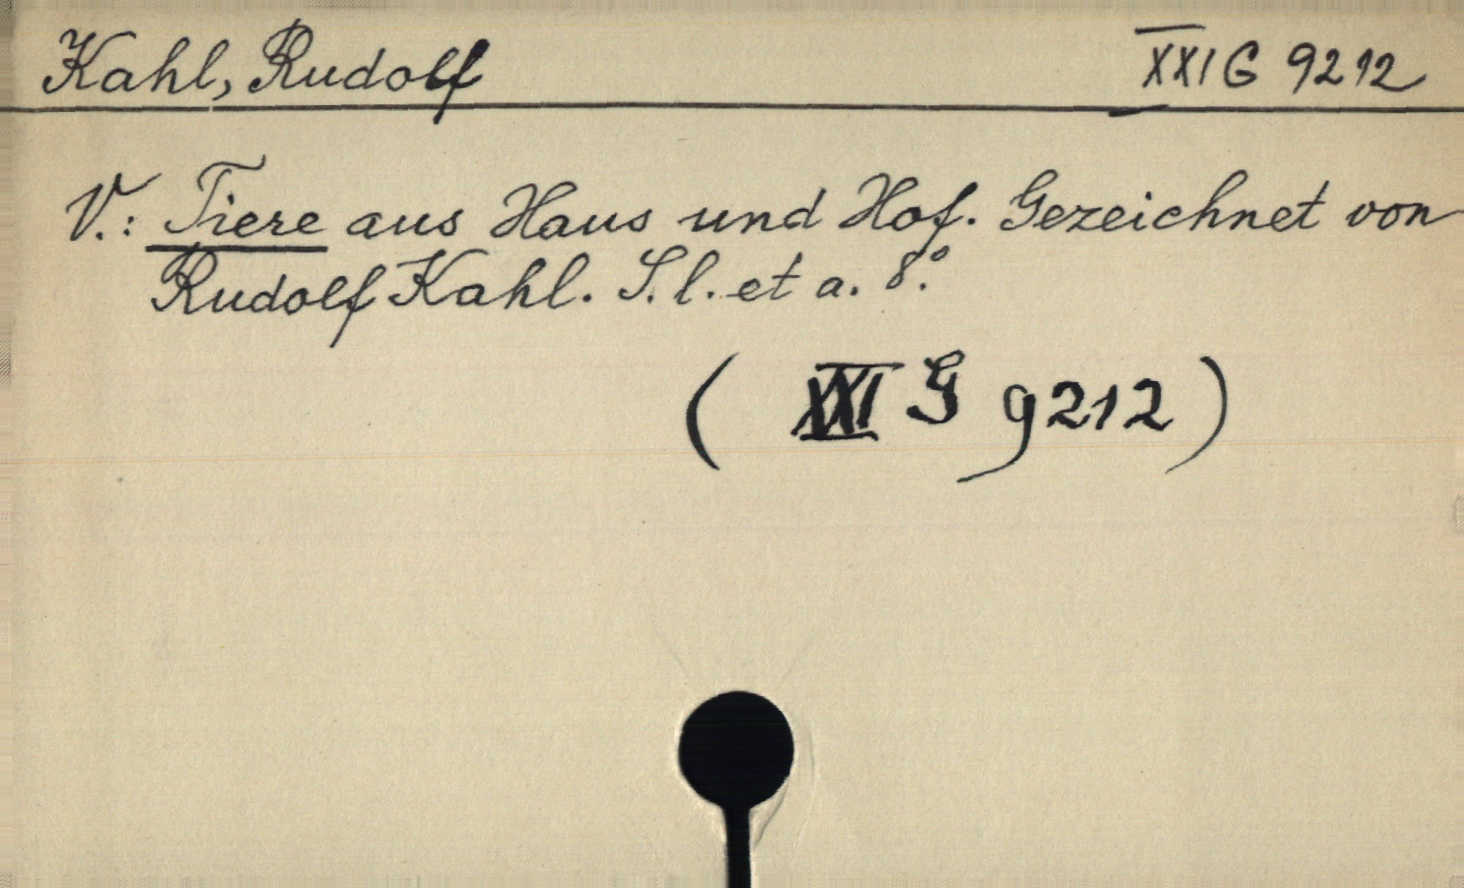 Kahl, Rudolf XXI G 9212
V.: Tiere aus Haus und Hof. Gezeichnet von
Rudolf Kahl. S. l. et a. 8.°
( XXI G 9212 )